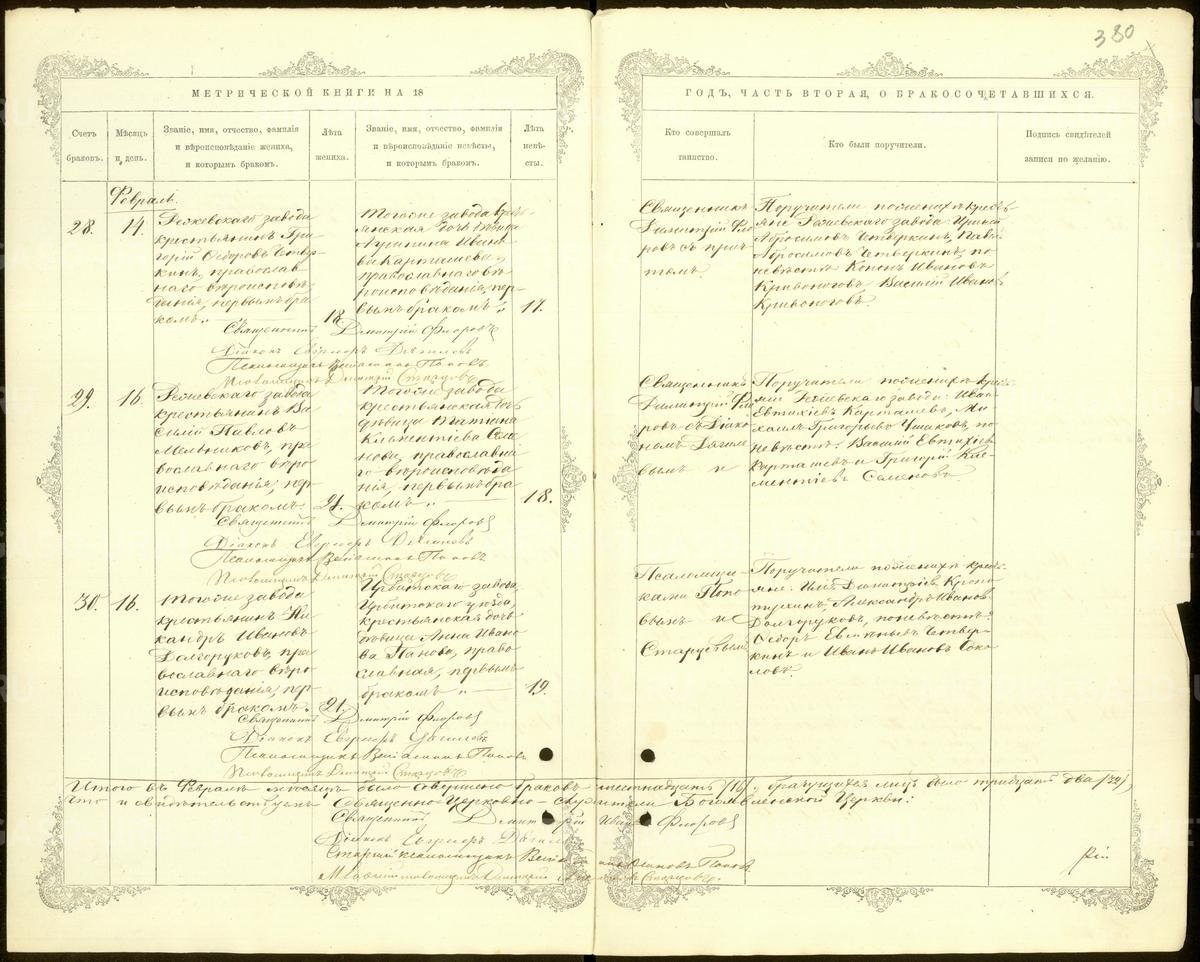 380
МЕТРИЧЕСКОЙ КНИГИ НА 18
ГОДЪ, ЧАСТЬ ВТОРАЯ, О БРАКОСОЧЕТАВШИХСЯ.
Счетъ
браковъ.
Мѣсяцъ
и день.
Званіе, имя, отчество, фамилія
и вѣроисповѣданіе жениха,
и которымъ бракомъ.
Лѣта
жениха.
Званіе, имя, отчество, фамилія
и вѣроисповѣданіе невѣсты,
и которымъ бракомъ.
Лѣта
невѣ-
сты.
Кто совершалъ
таинство.
Кто были поручители.
Подпись свидѣтелей
записи по желанію.
Февраль.
28.
14.
Режевскаго завода
крестьянинъ Гри-
горій Ѳедоровъ Четвер-
кинъ, православ-
наго вѣроисповѣ-
данія, первымъ бра-
комъ.
18.
Тогоже завода крес-
янская дочь дѣвица
Агрипина Ивано-
ва Карташева,
православнаго вѣ-
роисповѣданія, пер-
вымъ бракомъ.
17.
Священникъ
Димитрій Фло
ровъ съ прич
томъ.
Поручители по женихѣ крестъ-
яне Режевскаго завода:
Абросимовъ Четверкинъ,
Абросимовъ Четверкинъ, по
невѣстѣ: Ивановъ
Кривоноговъ, Василій Ивановъ
Кривоноговъ.
Священникъ Дмитрій Флоровъ
Діаконъ Дягилевъ
Псаломщикъ Веніаминъ Поповъ
Псаломщикъ Дмитрій Старцевъ
29.
16.
Режевскаго завода
крестьянинъ Ва
силій Павловъ
Мельниковъ, пра
вославнаго вѣро
исповѣданія, пер
вымъ бракомъ.
21.
Тогоже завода
крестьянская доч
дѣвица Татіана
Климентіева Семе
нова, православна
го вѣроисповѣда
нія, первымъ бра
комъ.
18.
Священникъ
Димитрій Фло
ровъ съ Діако
номъ Дягиле
вымъ и
Поручители по женихѣ крес
яне Режевскаго завода: Иванъ
Евтихіевъ Карташевъ, Ми-
хаилъ Григорьевъ Ушаковъ, по
невѣстѣ: Василій Евтихіевъ
Карташевъ и Григорій Кле-
ментіевъ Семеновъ.
Священникъ Дмитрій Флоровъ
Діаконъ Дягилевъ
Псаломщикъ Веніаминъ Поповъ
Псаломщикъ Дмитрій Старцевъ
30.
16.
Тогоже завода
крестьянинъ Ни
кандръ Ивановъ
Долгоруковъ, пра
вославнаго вѣро
исповѣданія, пер-
вымъ бракомъ.
21.
Ирбитскаго завода,
Ирбитскаго уѣзда,
крестьянская дочь
дѣвица Анна Ивано
ва Панова, право
славная, первымъ
бракомъ
19.
Псаломщи-
ками Попо
вымъ и
Старцевымъ
Поручители по женихѣ крестъ
яне: Александръ Ивановъ
Долгоруковъ, по невѣстѣ:
Ѳедоръ Четвер-
кинъ и Иванъ Ивановъ Соко
ловъ.
Священникъ Дмитрій Флоровъ
Діаконъ Дягилевъ
Псаломщикъ Веніаминъ Поповъ
Псаломщикъ Дмитрій Старцевъ
Итого въ Февралѣ мѣсяцѣ было совершено браковъ шестнадцать (16), брачущихся лицъ было тридцать два (32),
что и свидѣтельствуемъ Священно-Церковно-служители Богоявленской Церкви:
Священникъ Дмитрій Флоровъ
Діаконъ Дягилевъ
Старшій псаломщикъ Поповъ
Младшій псаломщикъ Дмитрій Старцевъ.